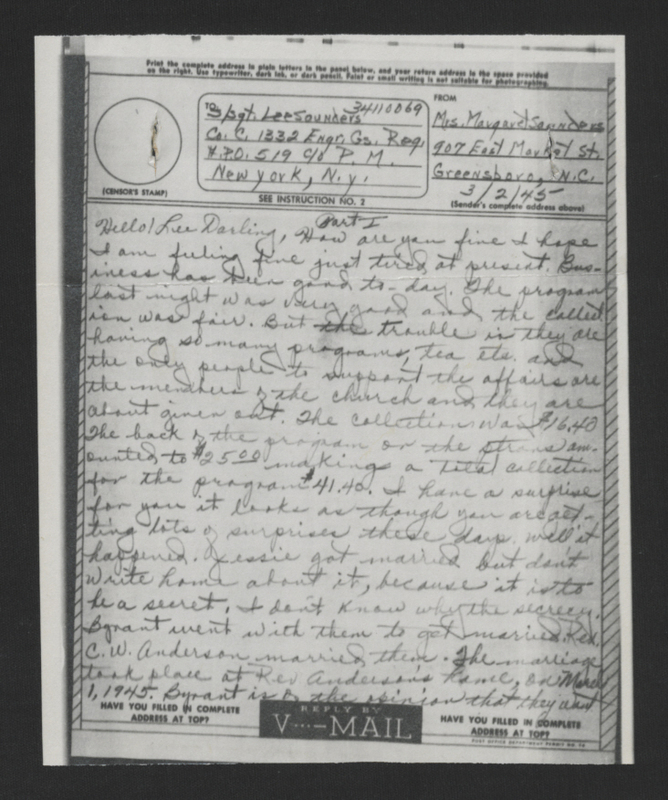 Print the complete address in plain letters in the panel below, and your return address in the space provided
on the right. Use typewriter, dark ink, or dark pencil. Faint or small writing is not suitable for photographing.
TO
S/Sgt. Lee Saunders 34110069
Co. C. 1332 Engr. Gs. Reg.
A.P.O. 519 c/o P. M.
New York, N.y.
FROM
Mrs. Margaret Saunders
907 East Market St.
Greensboro, N.C.
3/2/45
(Sender's complete address above)
(CENSOR'S STAMP)
SEE INSTRUCTION NO. 2
Part I
Hello! Lee Darling, How are you fine I hope
I am feeling fine just tired at present. Bus-
iness has been good to-day. The program
last night was very good and the collect
ion was fair. But the trouble is they are
having so many programs, tea ets. and
the only people to support the affairs are
the members of the church and they are
about given out. The collection was $16.40
The back of the program or the am-
ounted to $25.00 making a total collection
for the program $41.40. I have a surprise
for you it looks as though you are get-
ting lots of surprises these days. well it
happened. Lessie got married but don't
write home about it, because it is to
be a secret. I don't know why the secrecy.
Byrant went with them to get married. Rev.
C. W. Anderson married them. The marriage
took place at Rev Anderson's home, on March
1, 1945. Byrant is of the opinion that they
HAVE YOU FILLED IN COMPLETE
ADDRESS AT TOP?
REPLY BY
V···—MAIL
HAVE YOU FILLED IN COMPLETE
ADDRESS AT TOP?
POST OFFICE DEPARTMENT PERMIT NO.